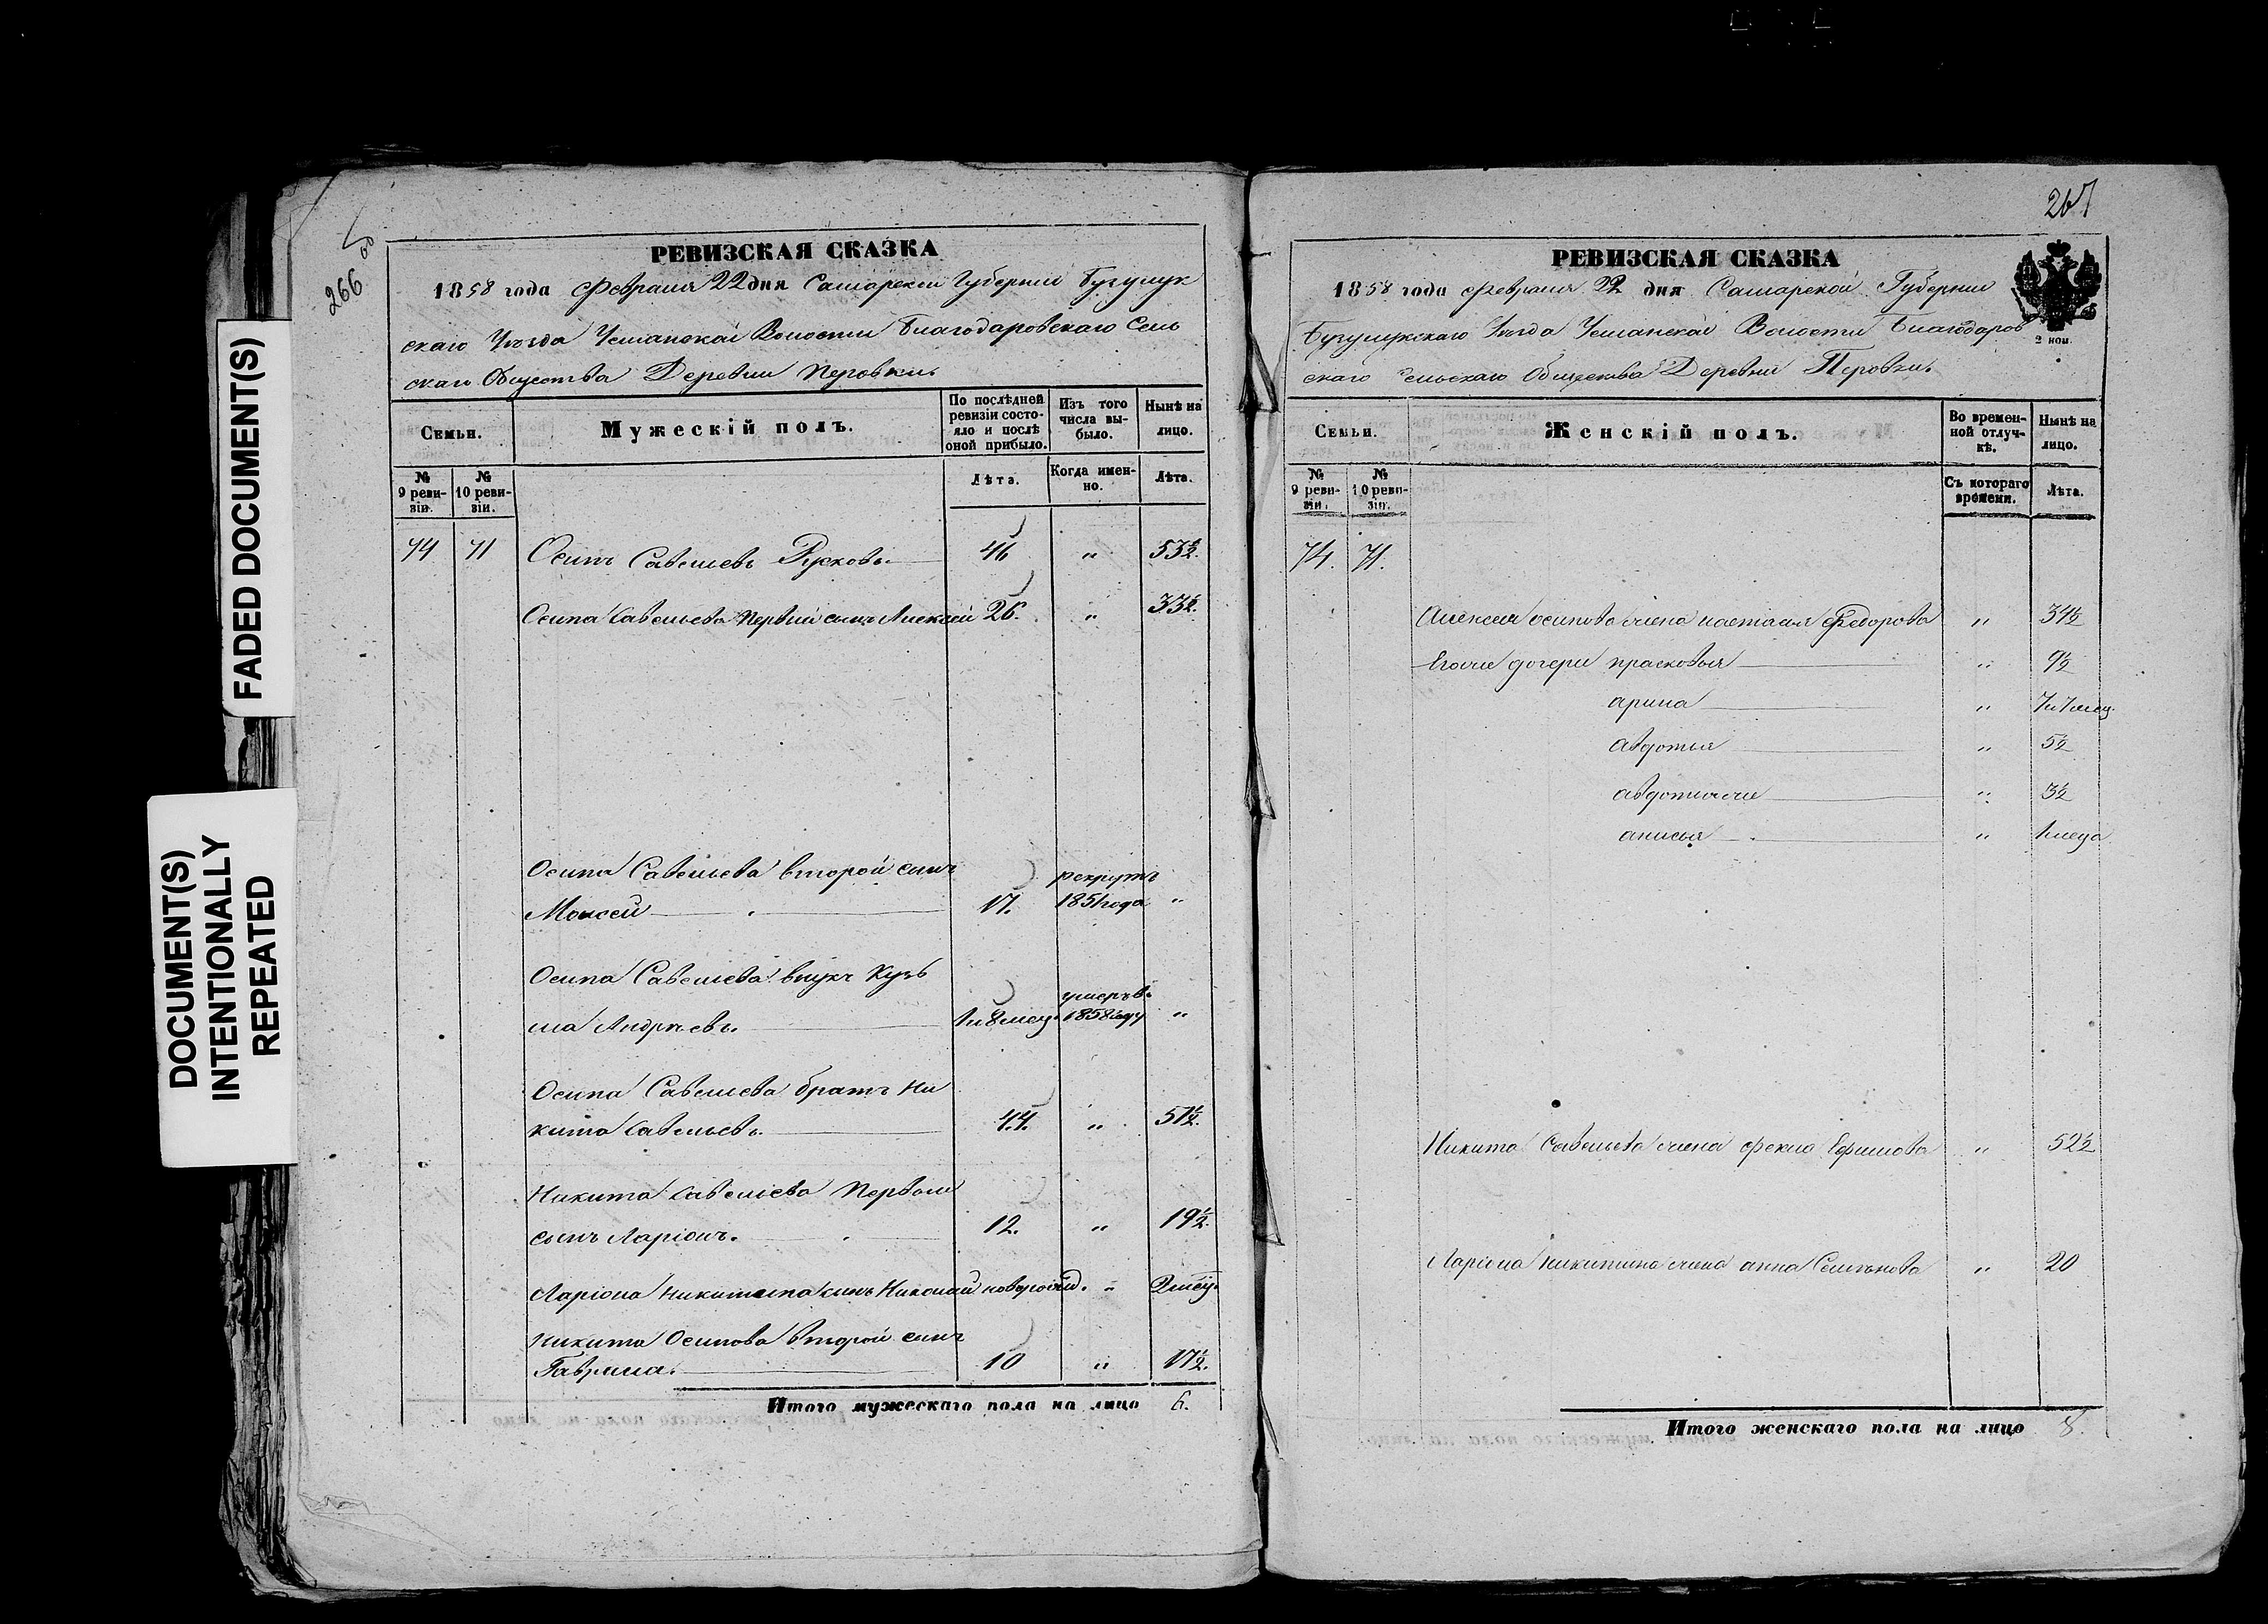 FADED DOCUMENT(S)
DOCUMENT(S)
INTENTIONALLY
REPEATED
266
РЕВИЗСКАЯ СКАЗКА
1858 года Февраля 22 дня Самарской Губернии Бузулук
скаго Уѣзда Усманской Волости Благодаровскаго Сель
скаго Общества Деревни Перовки.
Семьи.
Мужескій полъ.
По послѣдней ревизіи состояло и послѣ оной прибыло.
Изъ того числа выбыло.
Нынѣ на лицо.
№ 9 ревизіи.
№ 10 ревизіи.
Лѣта.
Когда именно.
Лѣта.
74 71 Осипъ Савельевъ 46 " 53½.
Осипа Савельева Первый сынъ Алексей 26. " 33½.
Осипа Савельева второй сынъ рекрутъ
Моисей 17. 1851 года "
Осипа Савельева внукъ Кузь умеръ в
ма Андрѣевъ. 1 и 8 мец. 1858 году "
Осипа Савельева братъ Ни
кита Савельевъ. 44. " 51½.
Никита Савельева Первой
сынъ Ларіонъ. 12. " 19½.
Ларіона Никитина сынъ Николай новорожд. " 2 мец.
Никита Осипова второй сынъ
Гаврила. 10 " 17½.
Итого мужескаго пола на лицо 6.
267
РЕВИЗСКАЯ СКАЗКА
1858 года Февраля 22 дня Самарской Губернии
Бузулукскаго Уѣзда Усманской Волости Благодаров
2 коп.
скаго Сельскаго Общества Деревни Перовки.
Семьи.
Женскій полъ.
Во временной отлучкѣ.
Нынѣ на лицо.
№ 9 ревизіи.
№ 10 ревизіи.
Съ котораго времени.
Лѣта.
74. 71.
Алексея осипова жена настасья Федорова " 31½
Егоже дочери прасковья " 9½
арина " 7 и 7 мец.
авдотья " 5½
авдотьяже " 3½
анисья " 1 меца
Никита Савельева жена фекла Ефимова " 52½
Ларіона никитина жена анна Семенова " 20
Итого женскаго пола на лицо 8.